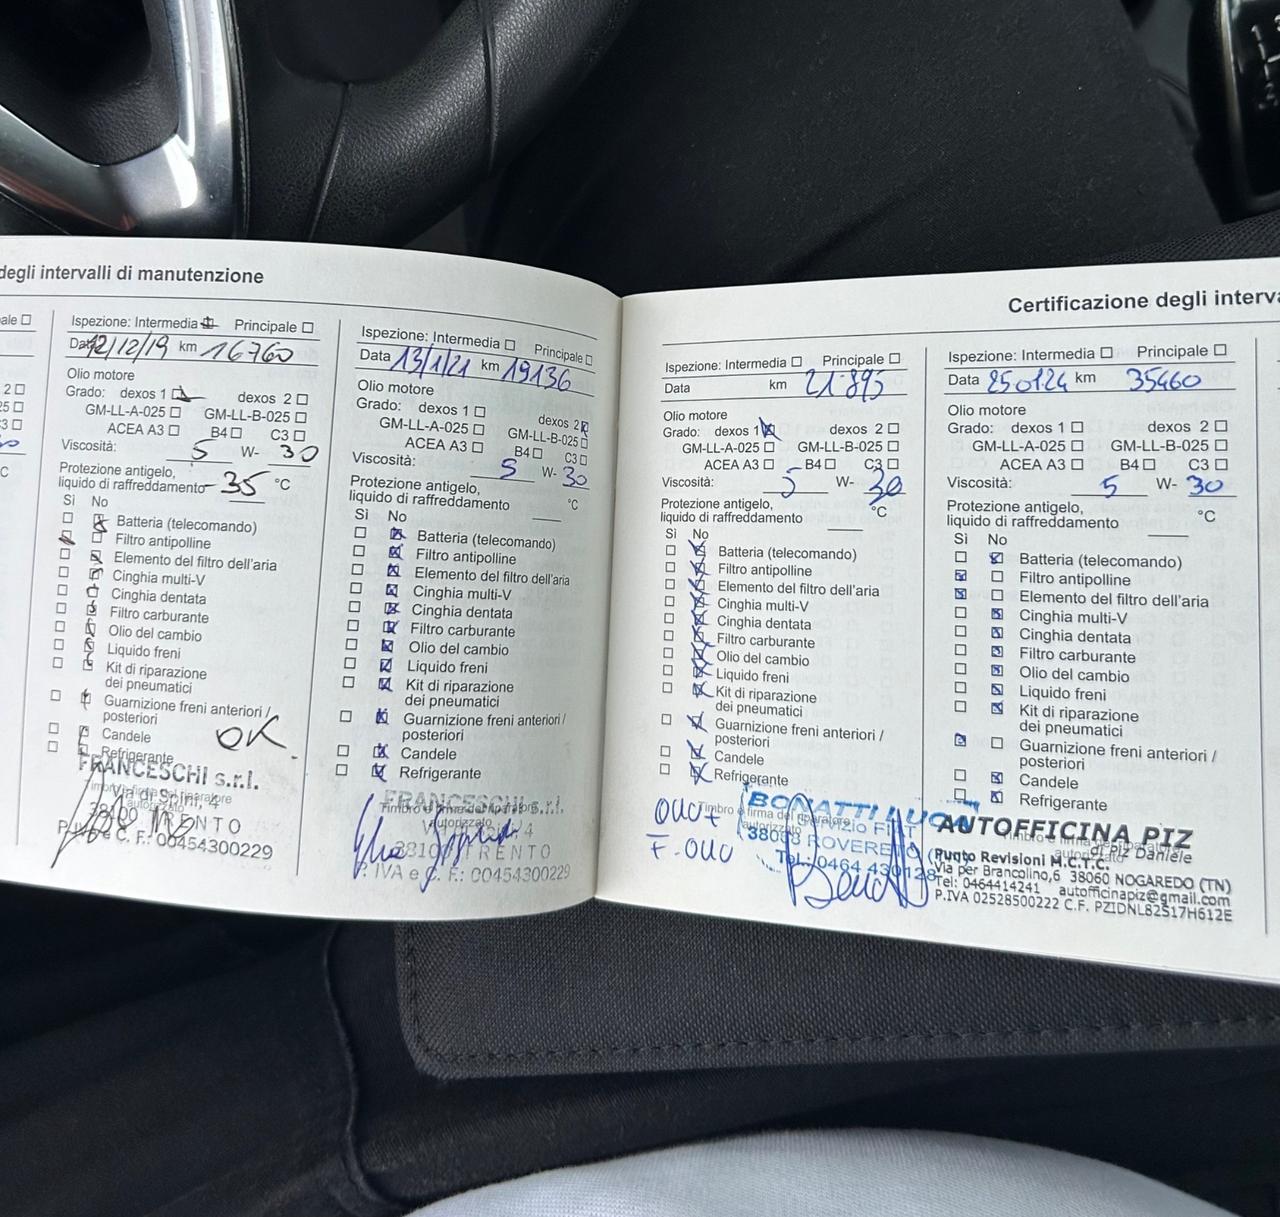 degli intervalli di manutenzione
ale
2
25
3
°C
Ispezione: Intermedia Principale
Data 12/12/19 km 16760
Olio motore
Grado: dexos 1 dexos 2
GM-LL-A-025 GM-LL-B-025
ACEA A3 B4 C3
Viscosità: 5 W- 30
Protezione antigelo,
liquido di raffreddamento -35 °C
Sì No
Batteria (telecomando)
Filtro antipolline
Elemento del filtro dell'aria
Cinghia multi-V
Cinghia dentata
Filtro carburante
Olio del cambio
Liquido freni
Kit di riparazione
dei pneumatici
Guarnizione freni anteriori /
posteriori
Candele OK
Refrigerante
FRANCESCHI s.r.l.
Via di Spini, 4
TRENTO
P. IVA e C. F.: 00454300229
Ispezione: Intermedia Principale
Data 13/1/21 km 19136
Olio motore
Grado: dexos 1 dexos 2
GM-LL-A-025 GM-LL-B-025
ACEA A3 B4 C3
Viscosità: 5 W- 30
Protezione antigelo,
liquido di raffreddamento °C
Sì No
Batteria (telecomando)
Filtro antipolline
Elemento del filtro dell'aria
Cinghia multi-V
Cinghia dentata
Filtro carburante
Olio del cambio
Liquido freni
Kit di riparazione
dei pneumatici
Guarnizione freni anteriori /
posteriori
Candele
Refrigerante
FRANCESCHI s.r.l.
Timbro e firma del riparatore
autorizzato
TRENTO
P. IVA e C. F.: 00454300229
Certificazione degli interva
Ispezione: Intermedia Principale
Data km 21895
Olio motore
Grado: dexos 1 dexos 2
GM-LL-A-025 GM-LL-B-025
ACEA A3 B4 C3
Viscosità: 5 W- 30
Protezione antigelo,
liquido di raffreddamento °C
Sì No
Batteria (telecomando)
Filtro antipolline
Elemento del filtro dell'aria
Cinghia multi-V
Cinghia dentata
Filtro carburante
Olio del cambio
Liquido freni
Kit di riparazione
dei pneumatici
Guarnizione freni anteriori /
posteriori
Candele
Refrigerante
BONATTI LUCA
Timbro e firma del riparatore
autorizzato
Servizio FIAT
38068 ROVERETO
Tel. 0464 430128
Ispezione: Intermedia Principale
Data 250124 km 35460
Olio motore
Grado: dexos 1 dexos 2
GM-LL-A-025 GM-LL-B-025
ACEA A3 B4 C3
Viscosità: 5 W- 30
Protezione antigelo,
liquido di raffreddamento °C
Sì No
Batteria (telecomando)
Filtro antipolline
Elemento del filtro dell'aria
Cinghia multi-V
Cinghia dentata
Filtro carburante
Olio del cambio
Liquido freni
Kit di riparazione
dei pneumatici
Guarnizione freni anteriori /
posteriori
Candele
Refrigerante
AUTOFFICINA PIZ
di Piz Daniele
Punto Revisioni M.C.T.C.
Via per Brancolino,6 38060 NOGAREDO (TN)
Tel: 0464414241 autofficinapiz@gmail.com
P.IVA 02528500222 C.F. PZIDNL82S17H612E